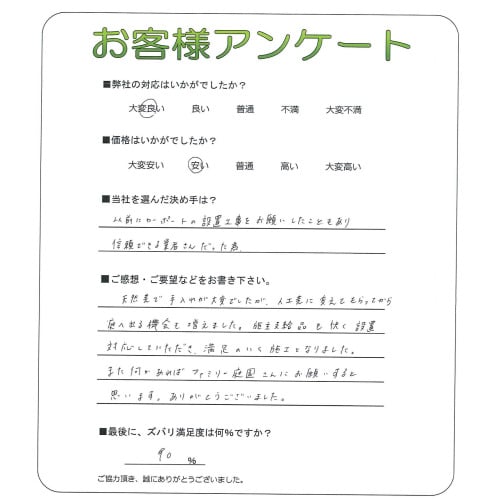 お客様アンケート
■弊社の対応はいかがでしたか？
大変良い 良い 普通 不満 大変不満
■価格はいかがでしたか？
大変安い 安い 普通 高い 大変高い
■当社を選んだ決め手は？
以前にカーポートの設置工事をお願いしたこともあり
信頼できる業者さんだった為
■ご感想・ご要望などをお書き下さい。
天然芝で手入れが大変でしたが、人工芝に変えてもらってから
庭へ出る機会も増えました。施主支給品も快く設置
対応していただき、満足のいく施工となりました。
また何かあればファミリー庭園さんにお願いすると
思います。ありがとうございました。
■最後に、ズバリ満足度は何%ですか？
90 %
ご協力頂き、誠にありがとうございました。